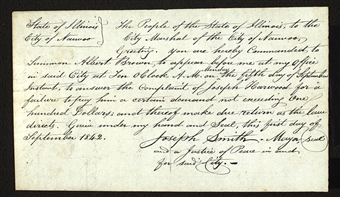 State of Illinois} The People of the State of Illinois, to the
City of Nauvoo City Marshal of the City of Nauvoo,
Greeting. You are hereby Commanded to
Summon Albert Brown, to appear before me at my Office
in said City at Ten O'Clock A.M. on the fifth day of September
Instant, to answer the Complaint of Joseph Harwood for a
failure to pay him a certain demand not exceeding One
hundred Dollars; and thereof make due return as the law
directs. Given under my hand and Seal, this first day of
September 1842. Joseph Smith Mayor seal
and a Justice of Peace in and
for said City.